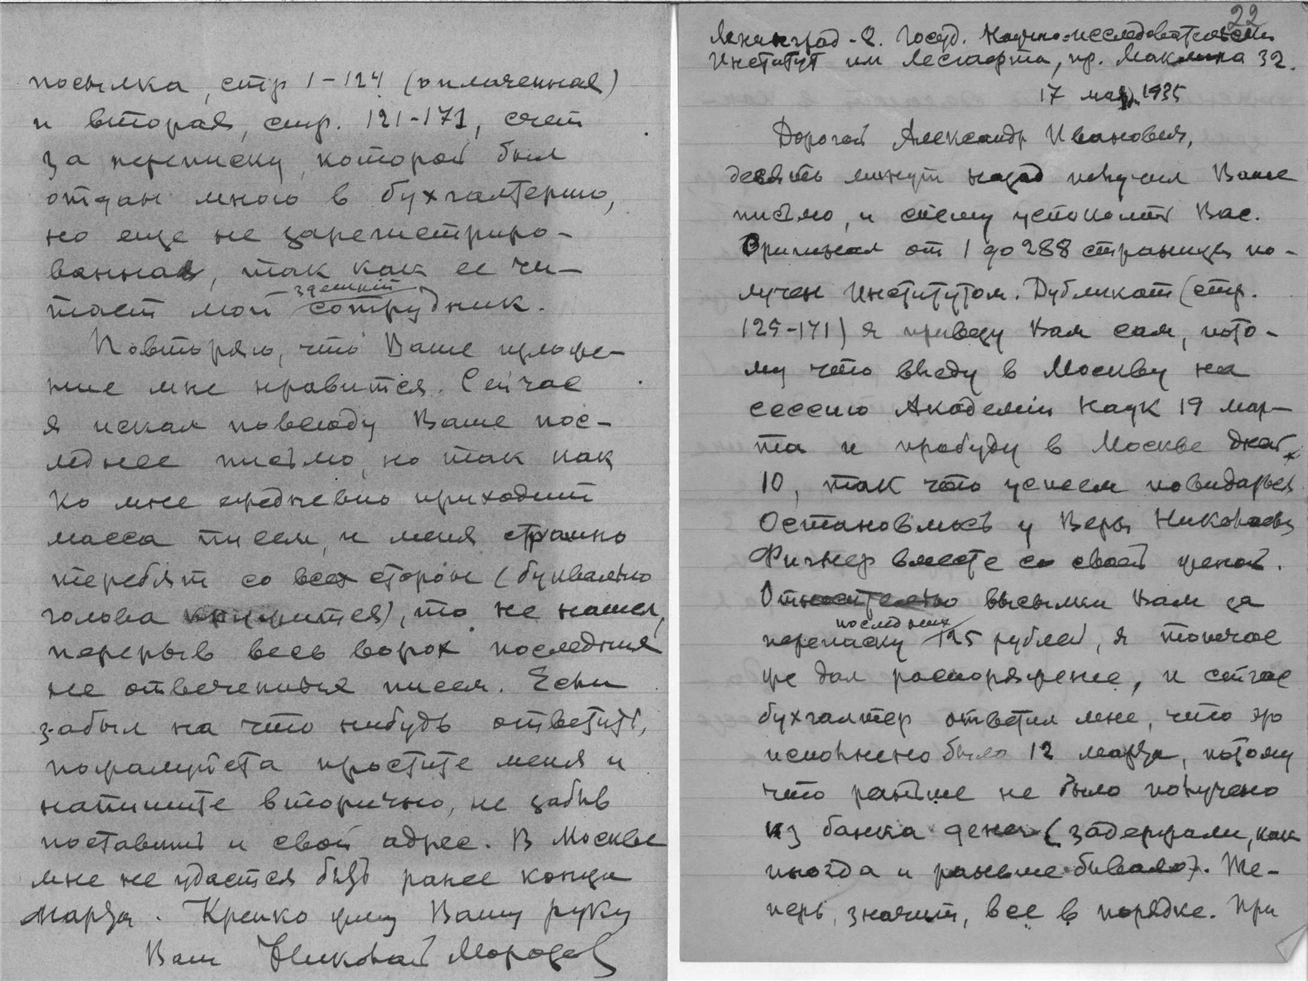 22
Ленинград-8. Госуд. Научно-исследовательский
Институт им Лесгафта, пр. Маклина 32.
17 марта 1935
Дорогой Александр Иванович,
девять минут назад получил Ваше
письмо, и спешу успокоить Вас.
Оригинал от 1 до 288 страницы по-
лучен Институтом. Дубликат (стр.
125-171) я привезу Вам сам, пото-
му что выеду в Москву на
сессию Академии Наук 19 мар-
та и пробуду в Москве дней
10, так что успеем повидаться
Остановлюсь у Веры Николаевны
Фигнер вместе со своей женой.
Относительно высылки Вам за
последних
переписку 125 рублей, я тотчас
же дал распоряжение, и сейчас
бухгалтер ответил мне, что это
исполнено было 12 марта, потому
что раньше не было получено
из банка денег (задержали, как
иногда и раньше бывало). Те-
перь, значит, все в порядке. При
посылка, стр 1-124 (оплаченная)
и вторая, стр. 121-171, счет
за переписку которой был
отдан мною в бухгалтерию,
но еще не зарегистриро-
ванная, так как ее чи-
здешний
тает мой сотрудник.
Повторяю, что Ваше изложе-
ние мне нравится. Сейчас
я искал повсюду Ваше пос-
леднее письмо, но так как
ко мне ежедневно приходит
масса писем, и меня страшно
теребят со всех сторон (буквально
голова кружится), то не нашел,
перерыв весь ворох последних
не отвеченных писем. Если
забыл на что нибудь ответить,
пожалуйста простите меня и
напишите вторично, не забыв
поставить и свой адрес. В Москве
мне не удастся быть ранее конца
марта. Крепко жму Вашу руку
Ваш Николай Морозов